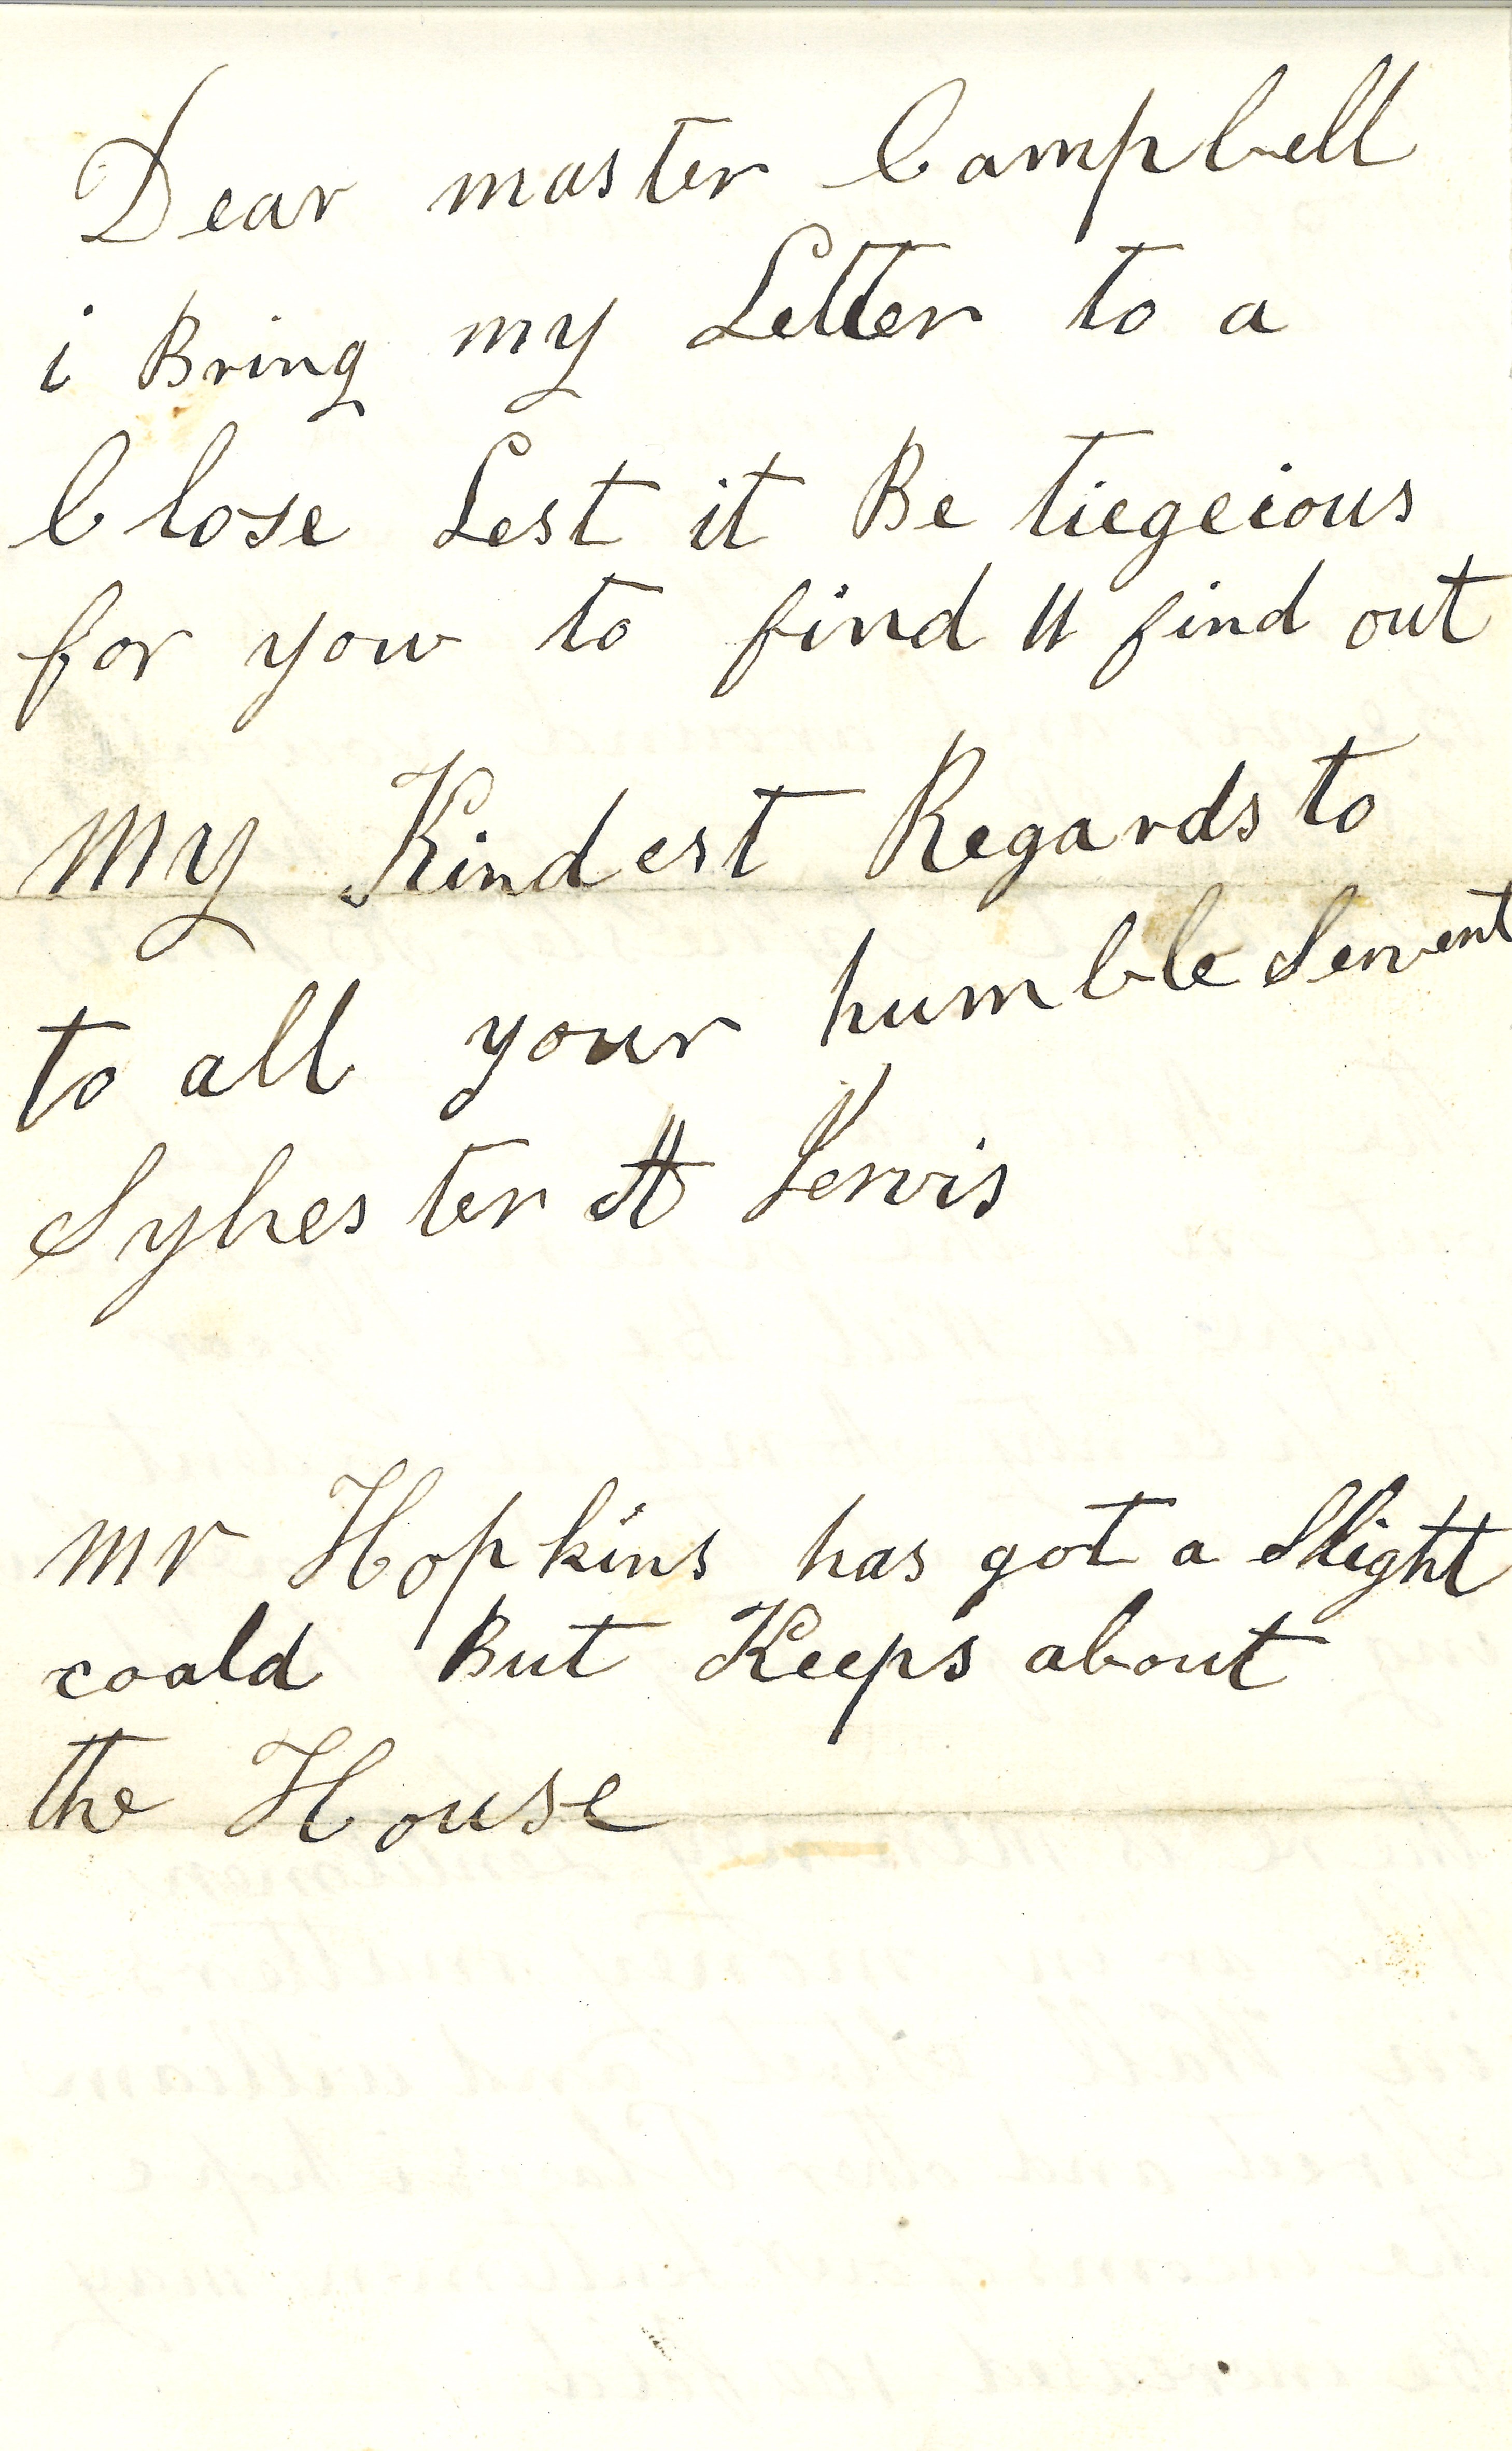 Dear master Campbell
i Bring my Letter to a
Close Lest it Be tiegeious
for you to find " find out
My Kindest Regards to
to all your humble Servent
Sylvester H Lewis
Mr Hopkins has got a Slight
coald But Keeps about
the House